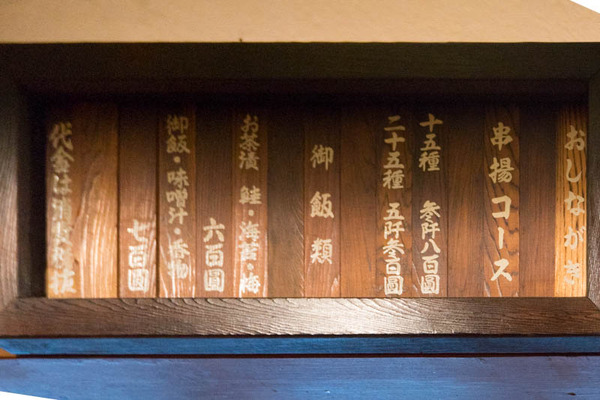 おしながき
串揚コース
十五種 参阡八百圓
二十五種 五阡参百圓
御飯類
お茶漬 鮭・海苔・梅
六百圓
御飯・味噌汁・香物
七百圓
代金は消費税